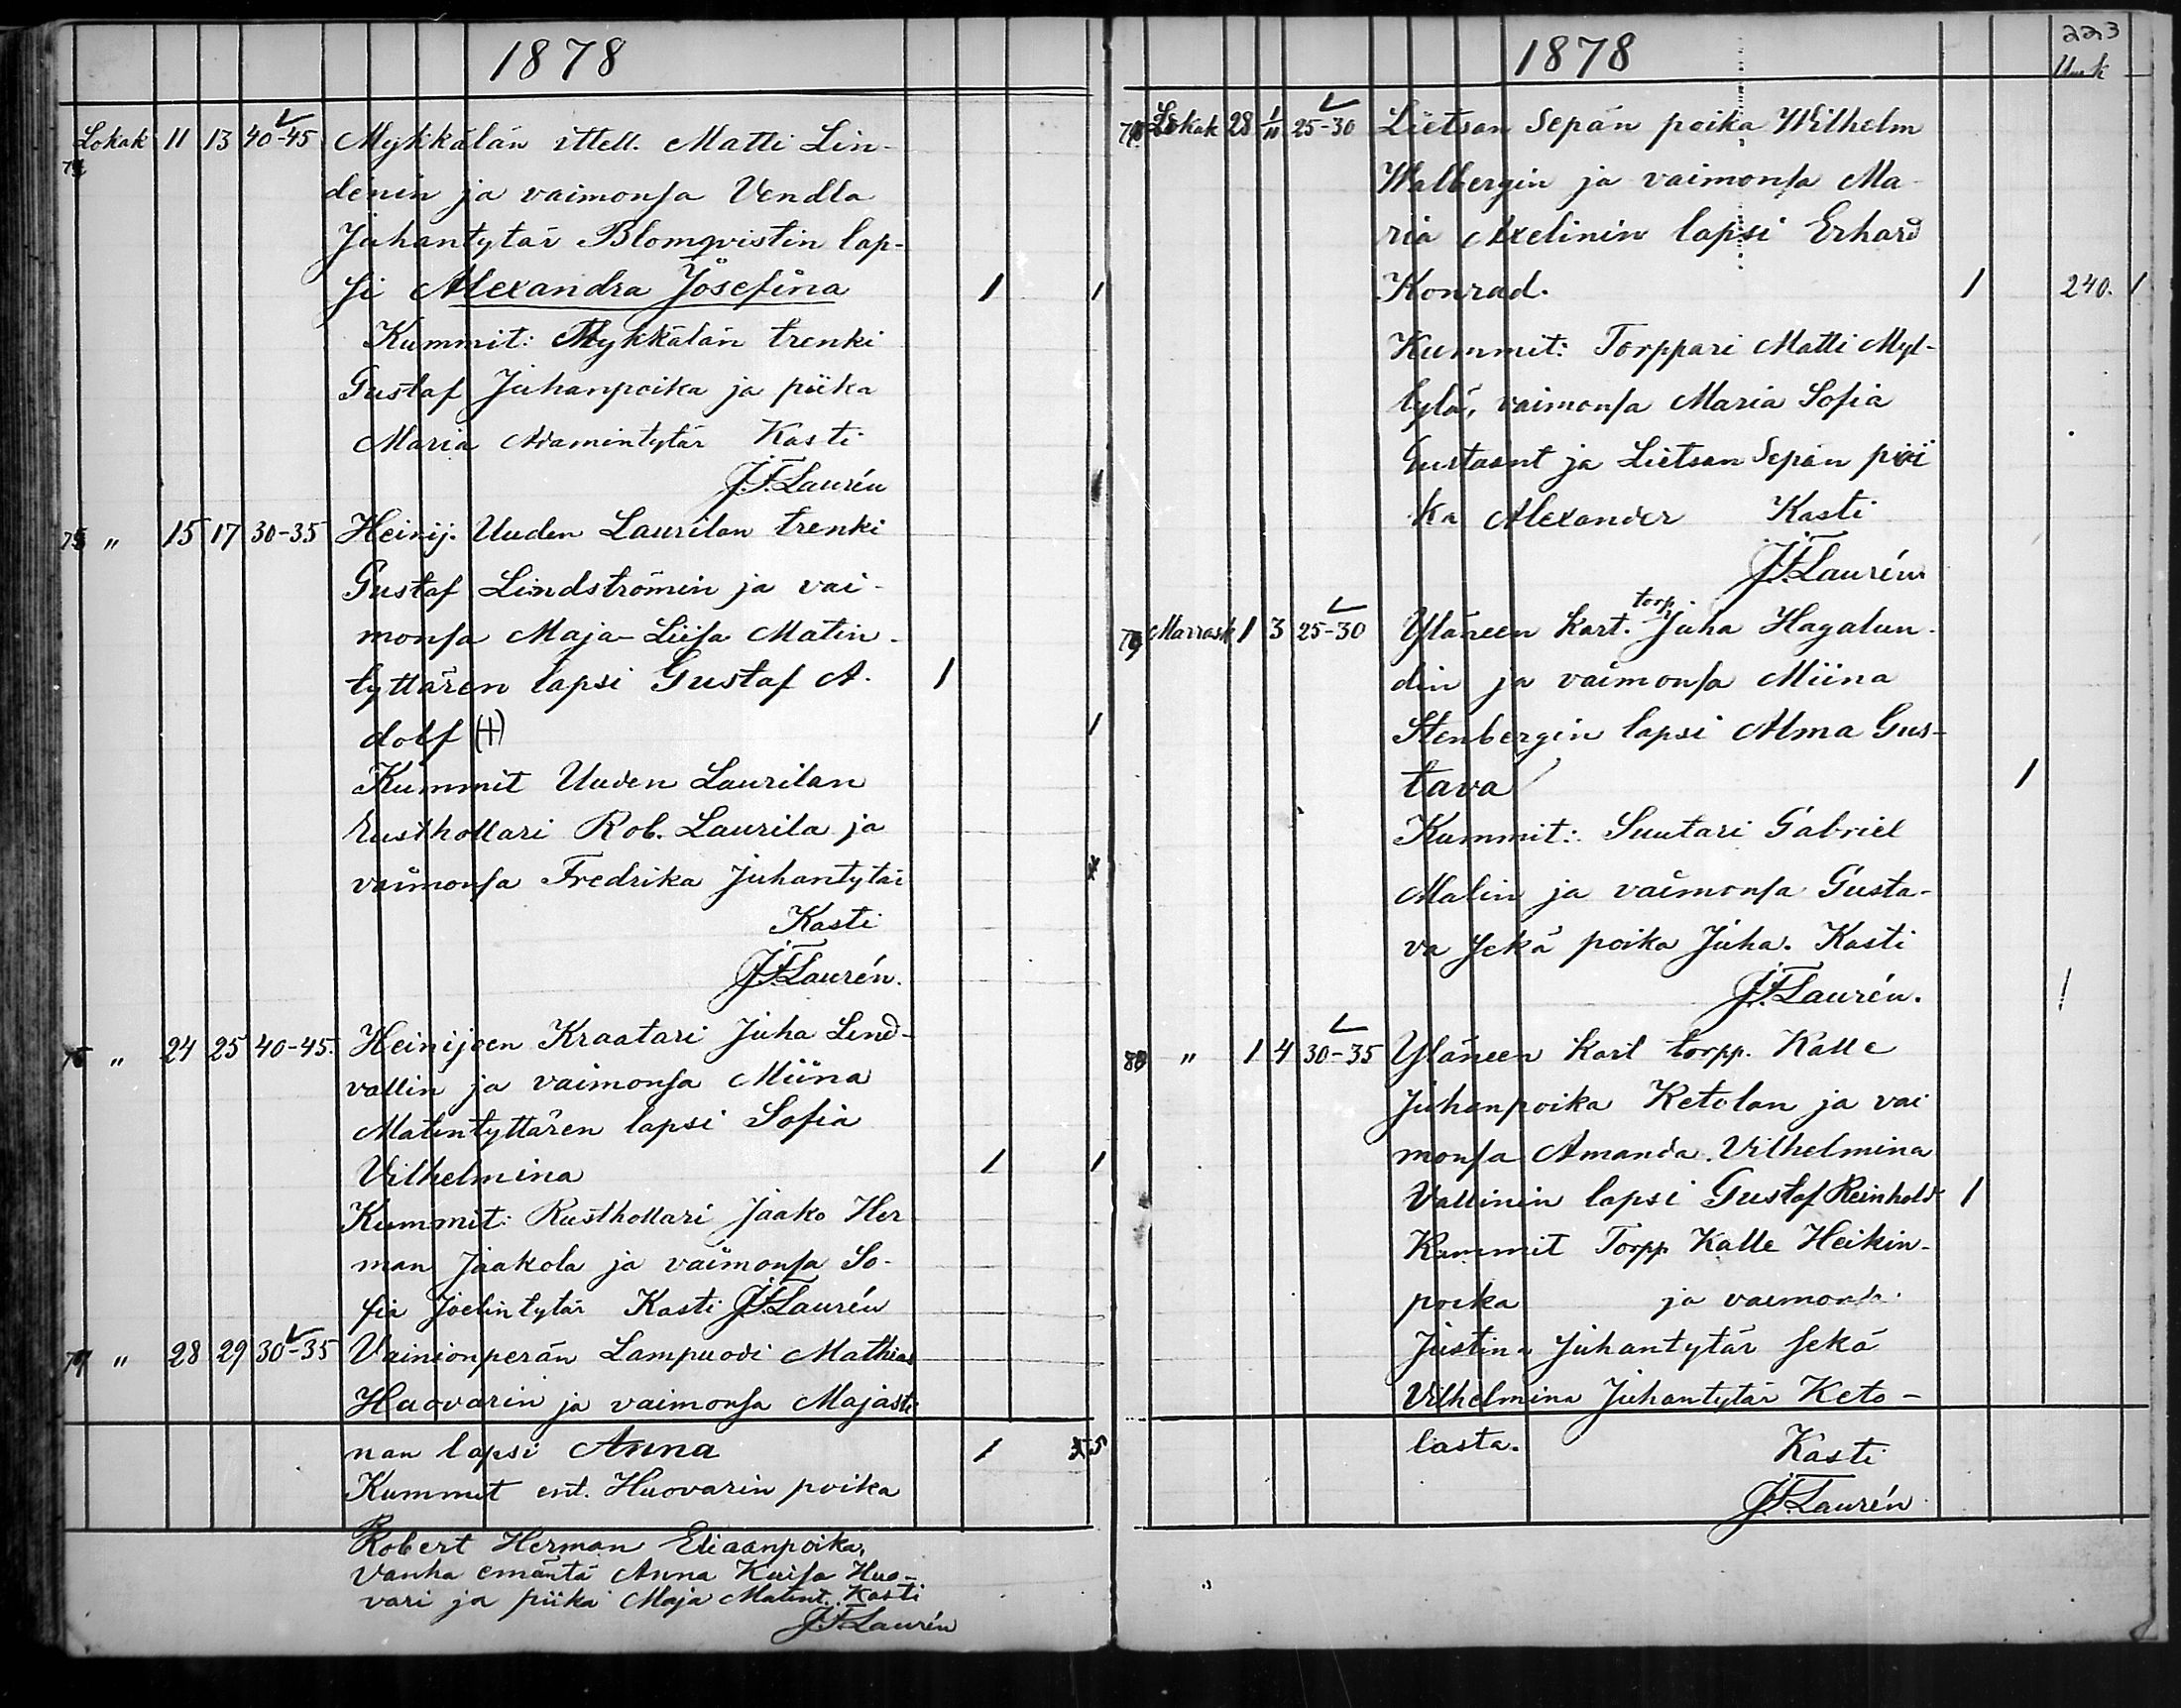 1878
Lokak 11 13 40-45 Mykkälän ittell. Matti Lin-
74
denin ja vaimonsa Vendla
Juhantytär Blomqvistin lap-
si Alexandra Josefina 1 1
Kummit: Mykkälän trenki
Gustaf Juhanpoika ja piika
Maria Adamintytär Kasti
J.F. Laurén
75 " 15 17 30-35 Heinij. Uuden Laurilan trenki
Gustaf Lindströmin ja vai-
monsa Maja-Liisa Matin-
tyttären lapsi Gustaf A- 1
dolf (+) 1
Kummit Uuden Laurilan
Rusthollari Rob. Laurila ja
vaimonsa Fredrika Juhantytär
Kasti
J.F. Laurén.
76 " 24 25 40-45. Heinijoen Kraatari Juha Lind-
vallin ja vaimonsa Miina
Matintyttären lapsi Sofia
Vilhelmina 1 1
Kummit: Rusthollari Jaako Her
man Jaakola ja vaimonsa So-
fia Joelintytär Kasti J.F. Laurén
77 " 28 29 30-35 Vainionperän Lampuodi Mathias
Huovarin ja vaimonsa Majasti
nan lapsi Anna 1 5
Kummit ent. Huovarin poika
Robert Herman Eliaanpoika,
Vanha emäntä Anna Kaisa Huo-
vari ja piika Maja Matint. Kasti
J.F. Laurén
1878 223
78 Lokak 28 1/11 25-30 Lietsan Sepän poika Wilhelm
Walbergin ja vaimonsa Ma-
ria Axelinin lapsi Erhard
Konrad. 1 240. 1
Kummit: Torppari Matti Myl-
lylä, vaimonsa Maria Sofia
Gustaant ja Lietsan Sepän poi
ka Alexander Kasti
J.F. Laurén
torp.
79 Marrask 1 3 25-30 Yläneen Kart. Juha Hagalun-
din ja vaimonsa Miina
Stenbergin lapsi Alma Gus-
tava 1
Kummit: Suutari Gabriel
Malin ja vaimonsa Gusta-
va sekä poika Juha. Kasti
J.F. Laurén.
80 " 1 4 30-35 Yläneen Kart torpp. Kalle
Juhanpoika Ketolan ja vai
monsa Amanda Vilhelmina
Vallinin lapsi Gustaf Reinhold 1
Kummit Torpp Kalle Heikin-
poika ja vaimonsa
Justina Juhantytär sekä
Vilhelmina Juhantytär Keto-
lasta. Kasti
J.F. Laurén